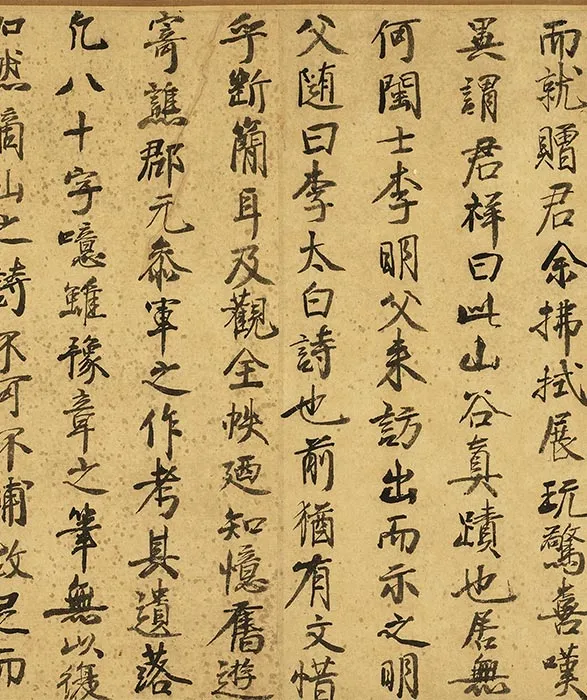 而就贈君余拂拭展玩驚喜嘆
異謂君祥曰此山谷真蹟也居無
何閩士李明父来訪出而示之明
父随曰李太白詩也前猶有文惜
乎斷簡耳及觀全帙廼知憶舊遊
寄譙郡元叅軍之作考其遺落
凡八十字噫雖豫章之筆無以復
加然謫仙之詩不可不補故足而